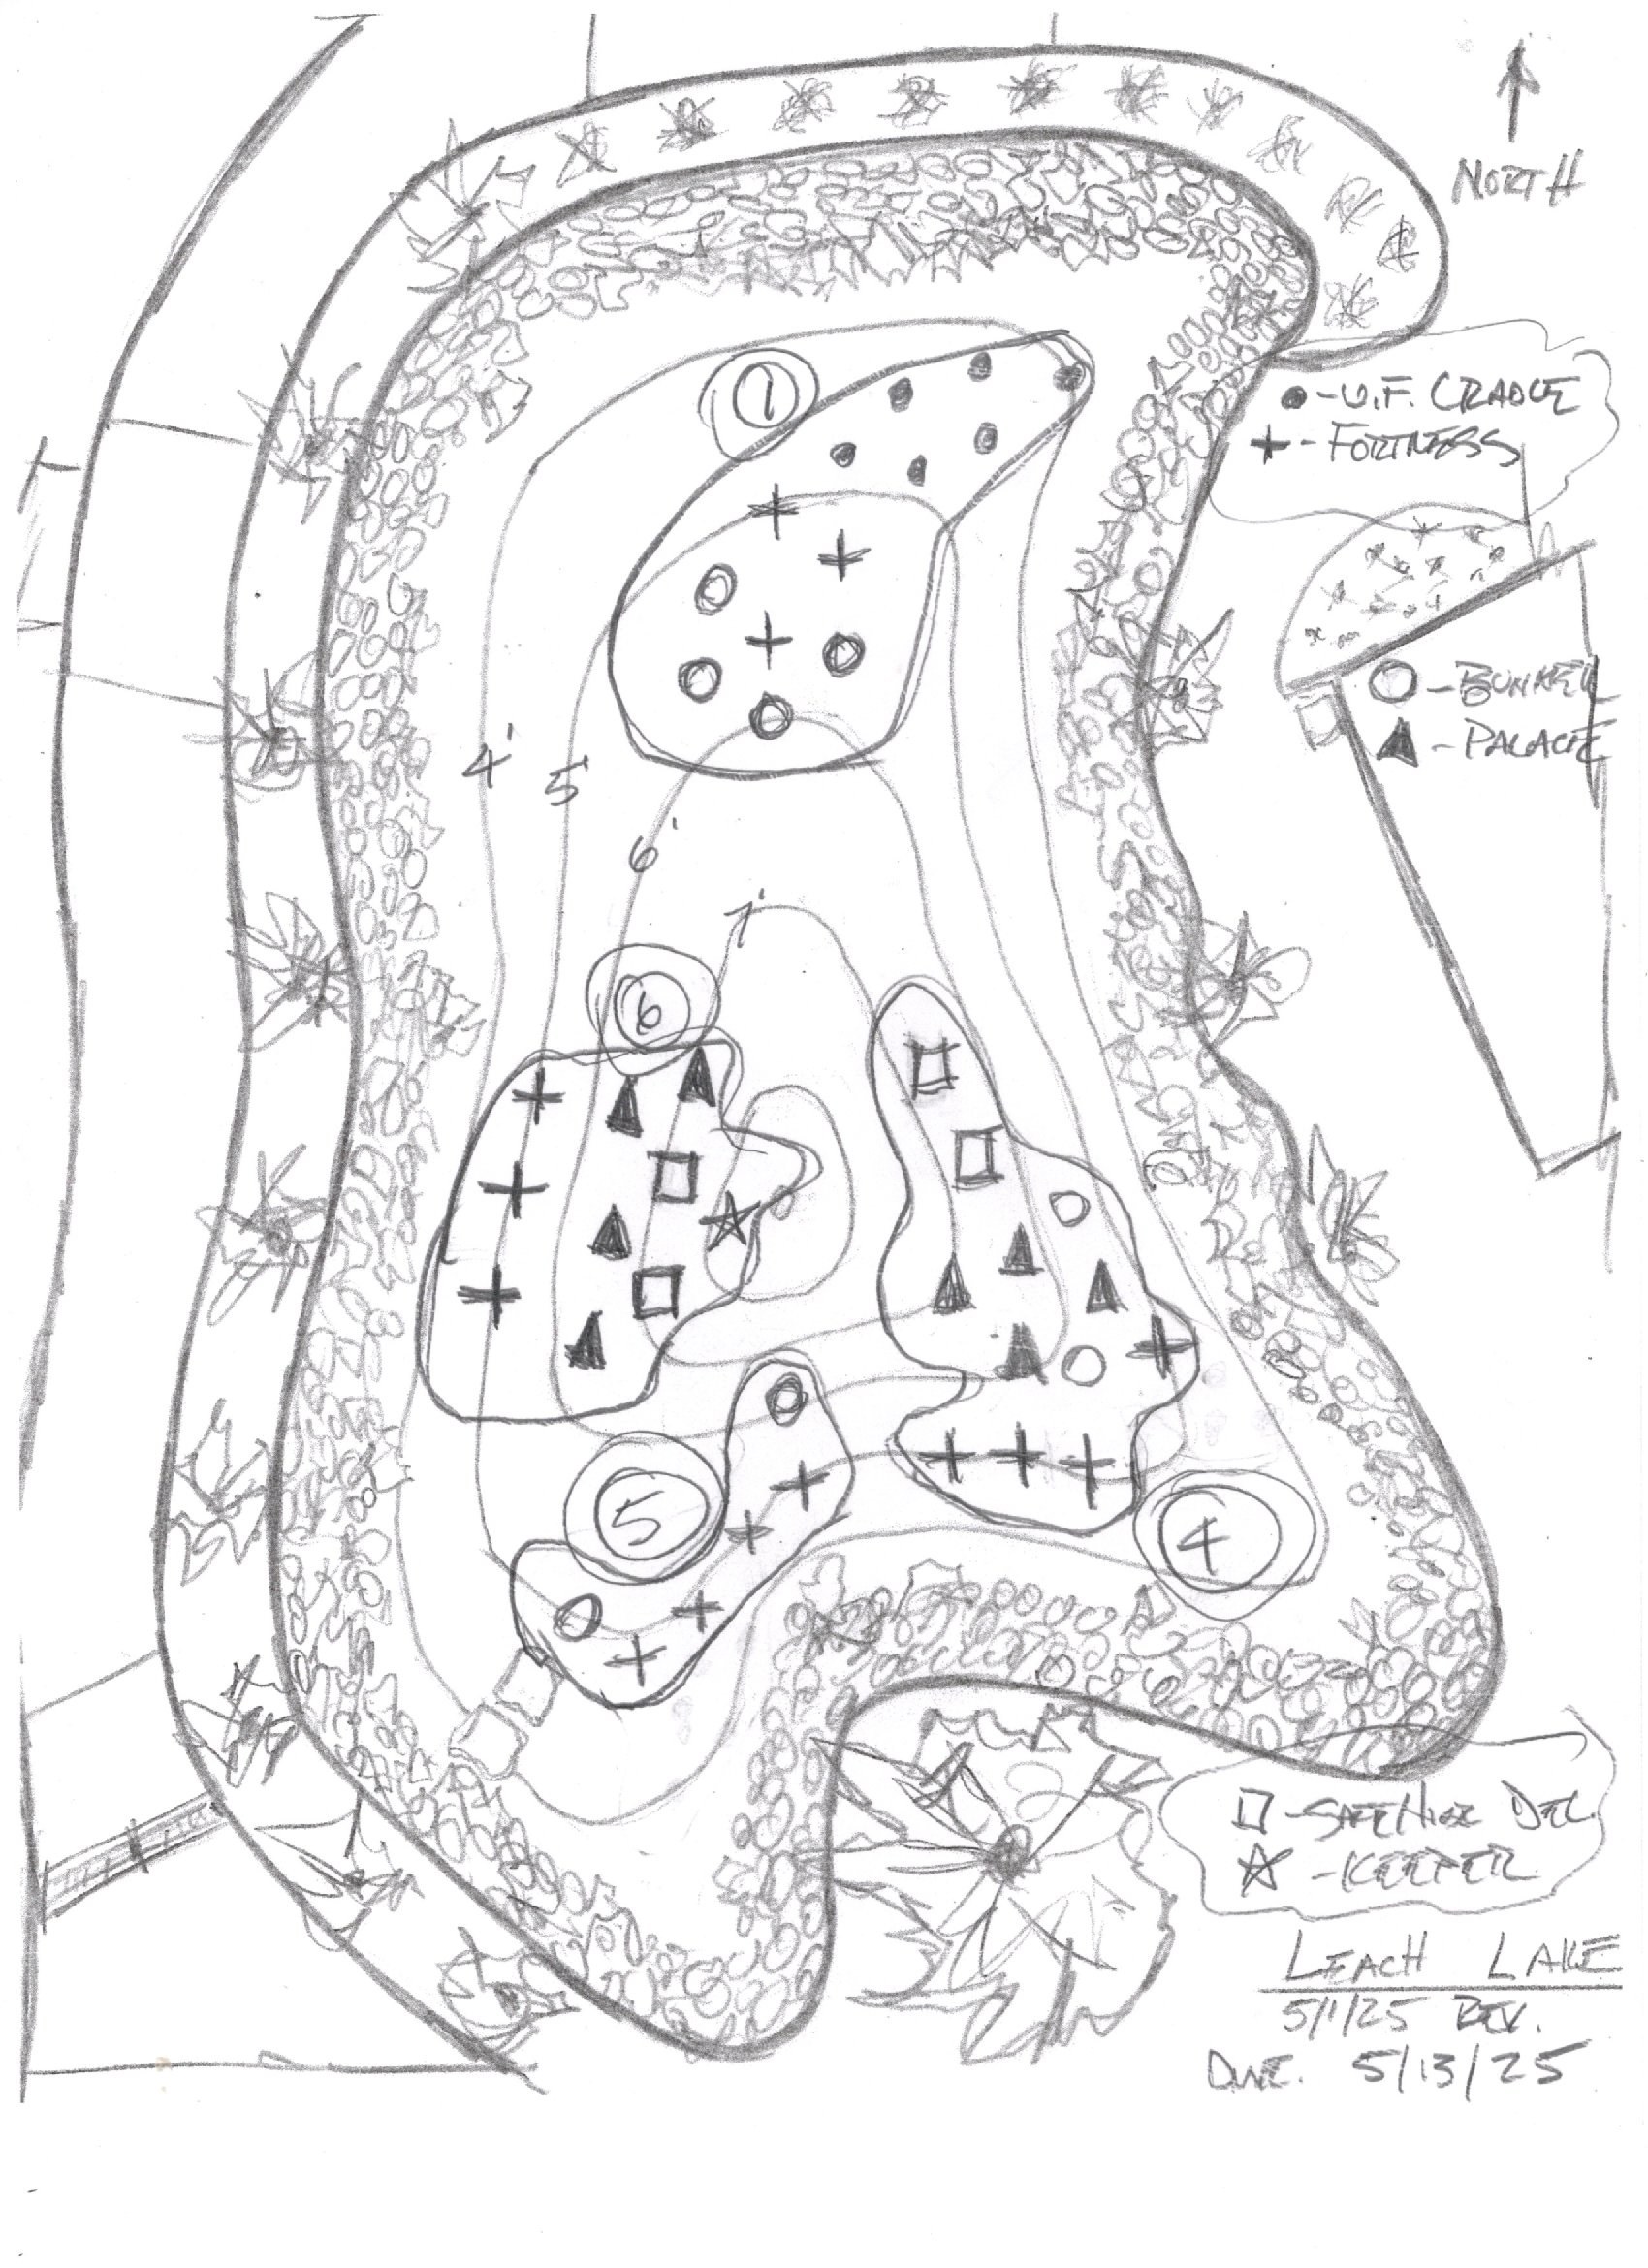 NORTH
1
● - U.F. CRADLE
+ - FORTRESS
○ - BUNKER
▲ - PALACE
4'
5'
6'
7'
6
5
4
□ - SAFEHIDE DEL.
☆ - KEEPER
LEACH LAKE
5/1/25 REV.
5/13/25